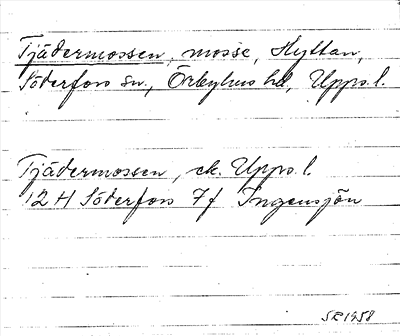 Tjädermossen, mosse, Hyttan,
Söderfors sn, Örbyhus hd, Upps. l.
Tjädermossen, ek. Upps. l.
12 H Söderfors 7 f Ingensjön
SR 1958